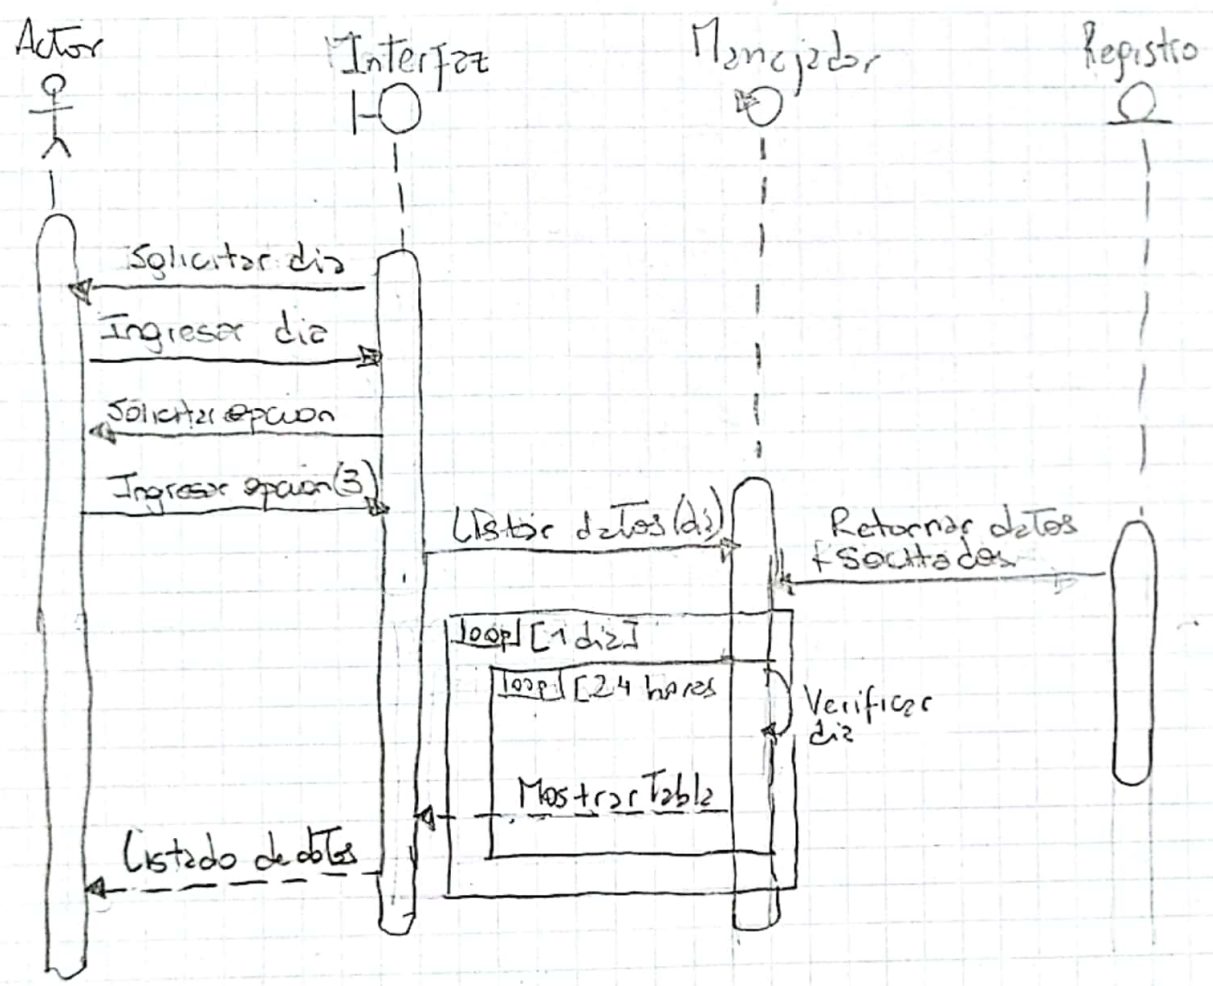 Actor
Interfaz
Manejador
Registro
Solicitar dia
Ingresar dia
Solicitar opcion
Ingresar opcion(3)
Listar datos(dia)
Retornar datos
Solicitados
loop [1 dia]
loop [24 horas
Verificar
dia
Mostrar Tabla
Listado de datos